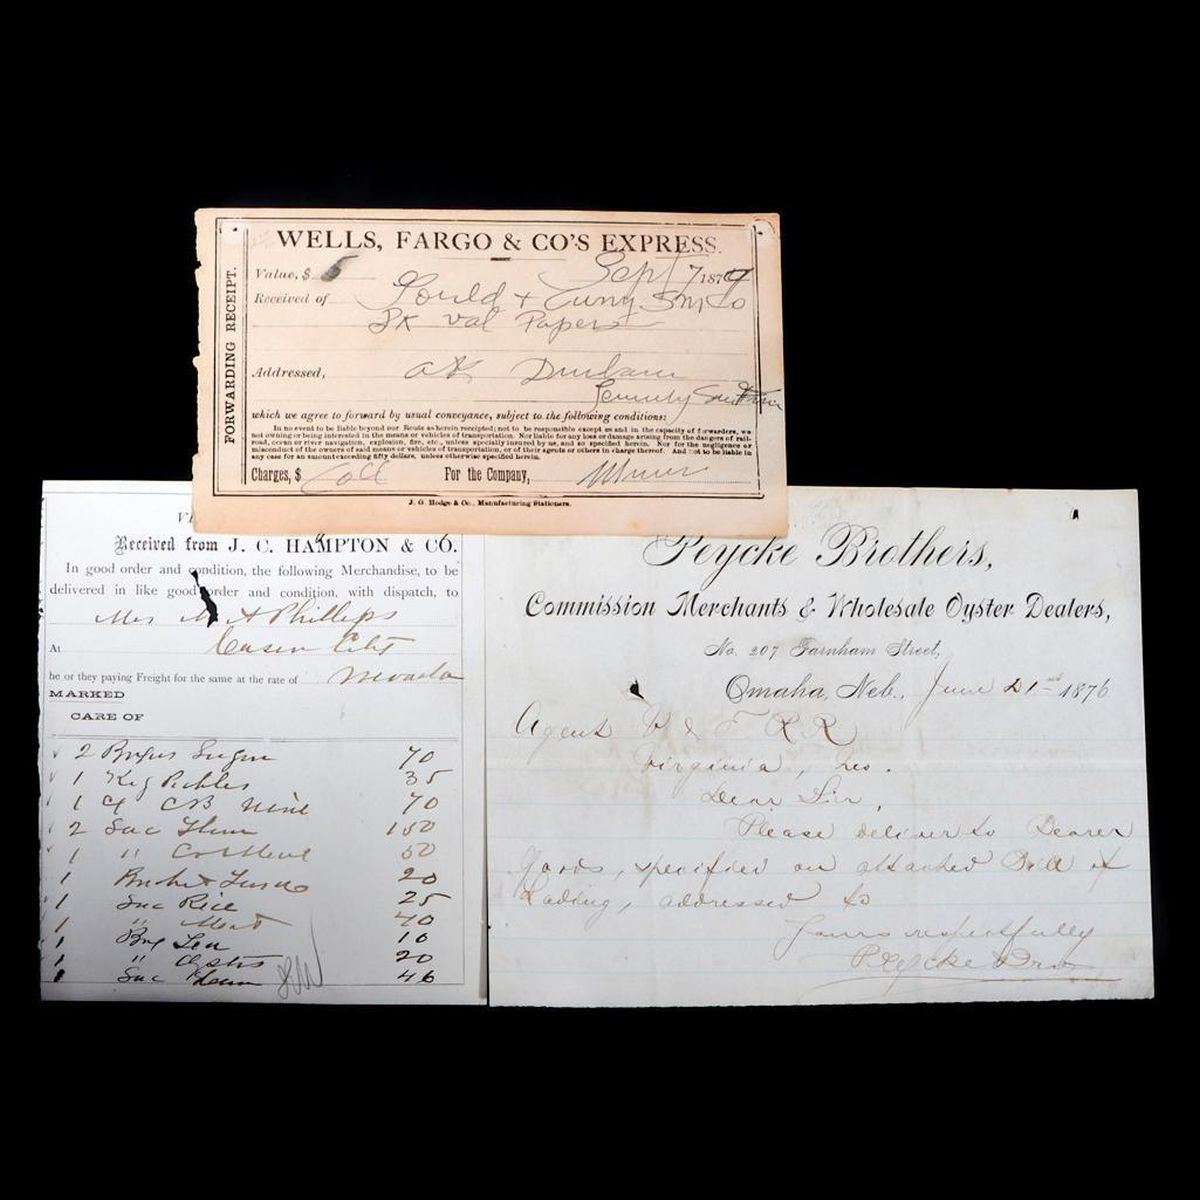 WELLS, FARGO & CO'S EXPRESS.
FORWARDING RECEIPT.
Value, $ 5 Sept 7 1879
Received of Gould & Curry S M Co
Pk val Papers
Addressed, 
which we agree to forward by usual conveyance, subject to the following conditions:
In no event to be liable beyond our Route as herein receipted; not to be responsible except as and in the capacity of forwarders, we
not owning or being interested in the means or vehicles of transportation. Nor liable for any loss or damage arising from the dangers of rail-
road, ocean or river navigation, explosion, fire, etc., unless specially insured by us, and so specified herein. Nor for the negligence or
misconduct of the owners of said means or vehicles of transportation, or of their agents or others in charge thereof. And not to be liable in
any case for an amount exceeding fifty dollars, unless otherwise specified herein.
Charges, $ Coll For the Company,
J. G. Hodge & Co., Manufacturing Stationers.
Received from J. C. HAMPTON & CO.
In good order and condition, the following Merchandise, to be
delivered in like good order and condition, with dispatch, to
Mrs M A Phillips
At
he or they paying Freight for the same at the rate of Nevada
MARKED
CARE OF
2 Sugar 70
1 Keg Pickles 35
1 70
2 Sac 150
1 " 50
1 20
1 Sac Rice 25
1 " 40
1 10
1 " 20
1 Sac 46
Peycke Brothers,
Commission Merchants & Wholesale Oyster Dealers,
No. 207 Farnham Street,
Omaha, Neb., June 21 1876
Agent V & T R R
Virginia, Nev.
Dear Sir,
Please deliver to Bearer
goods, specified on attached Bill of
Lading, addressed to
Yours respectfully
Peycke Bros